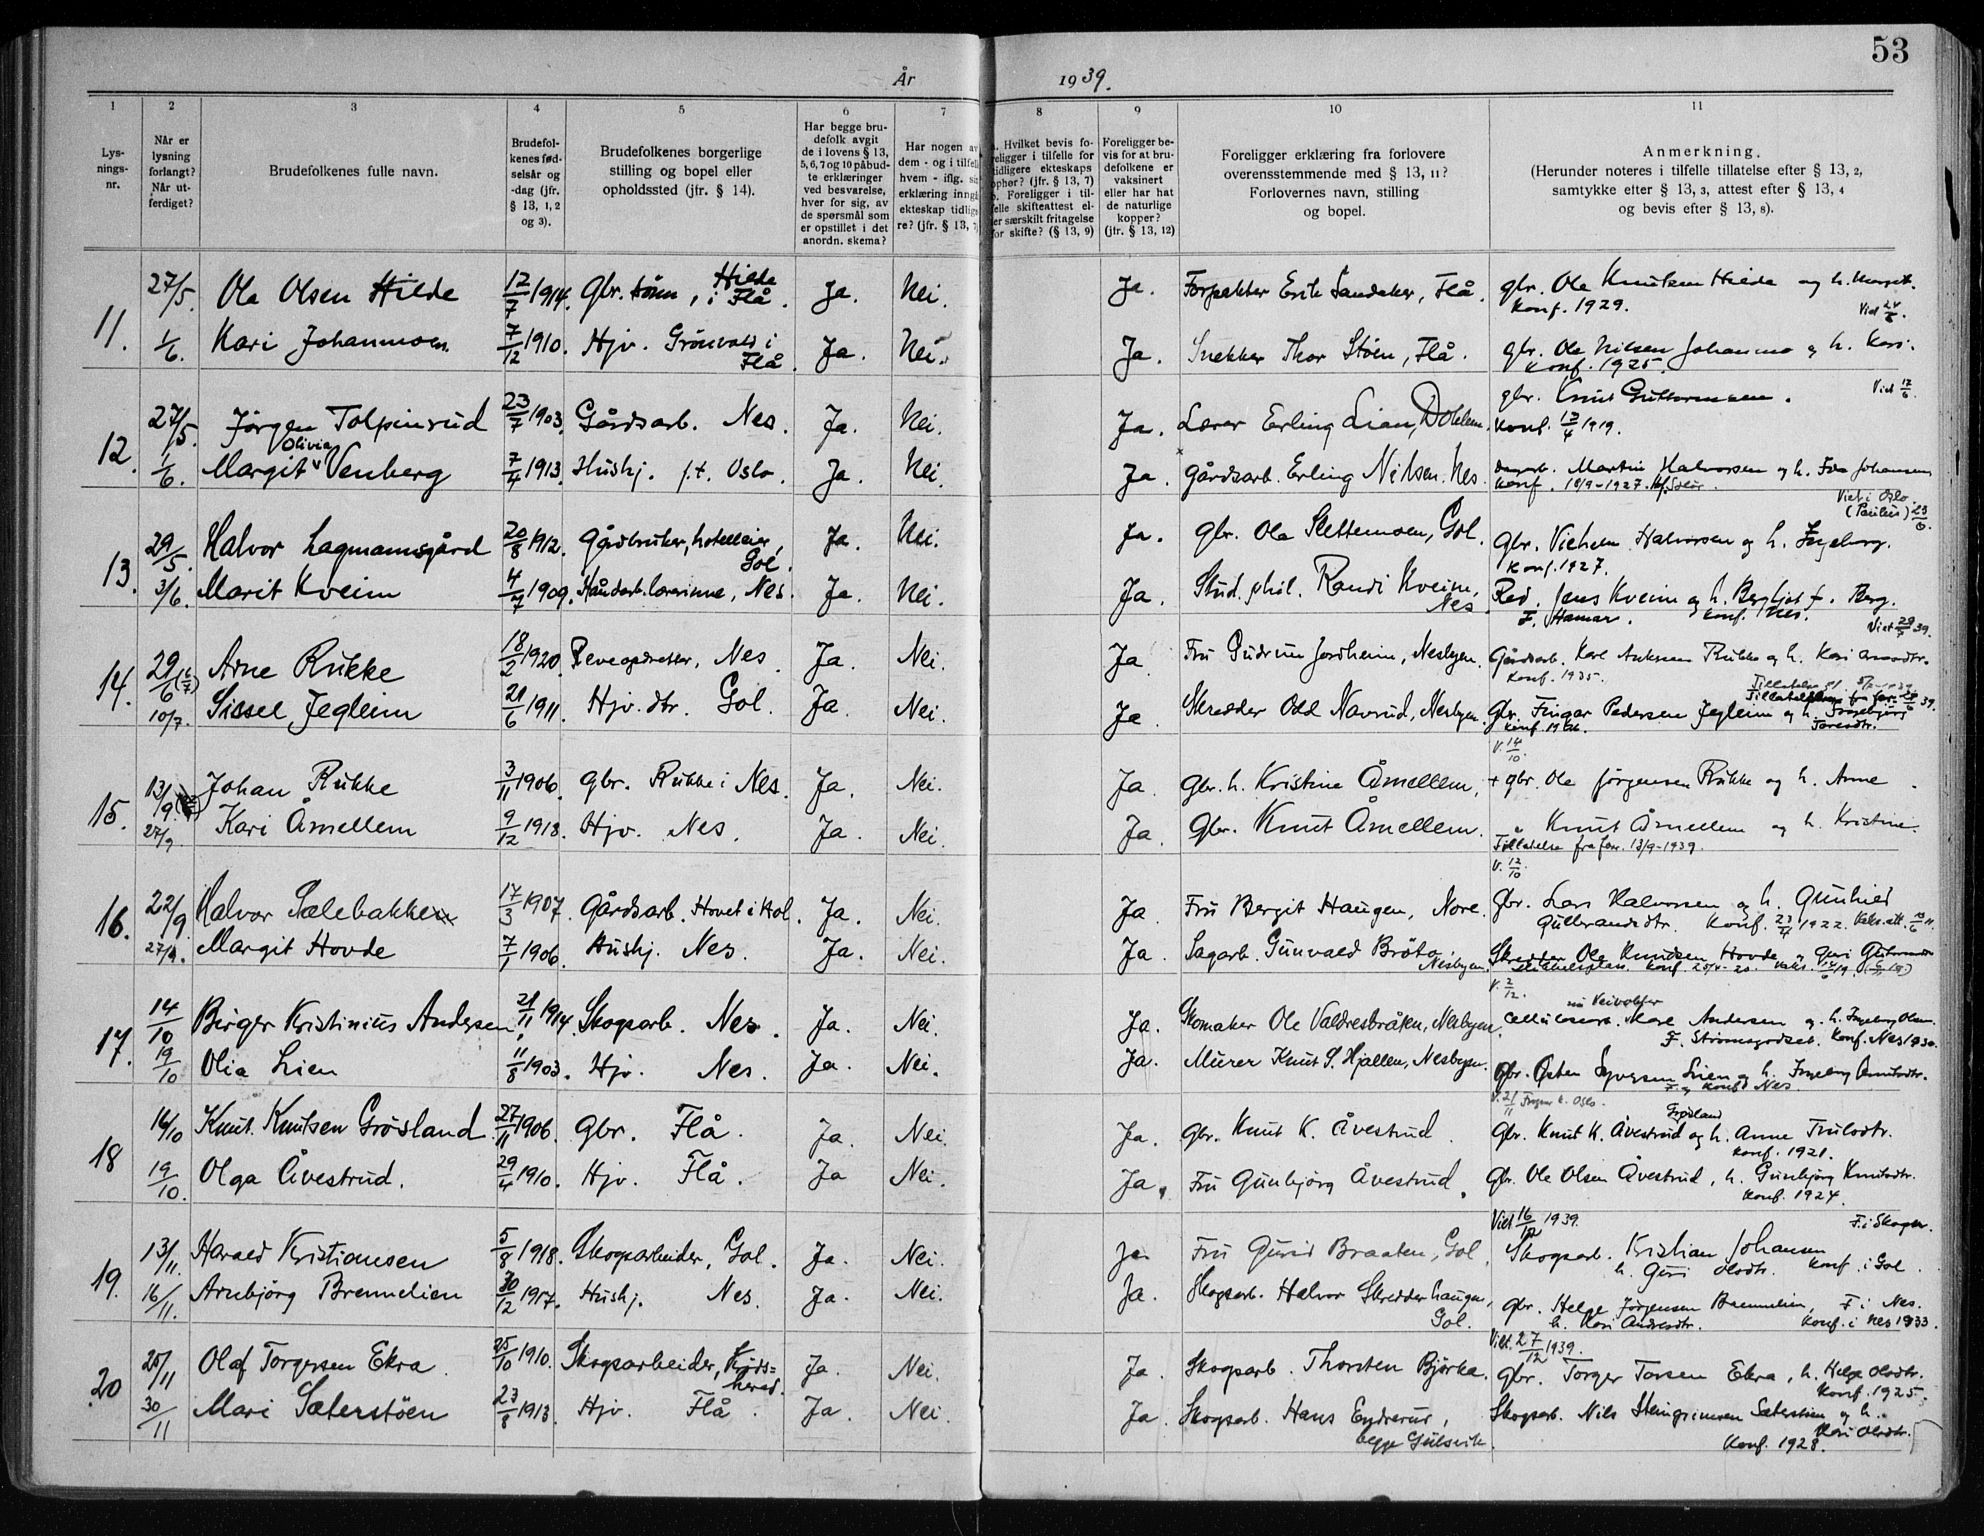 53
År 1939.
1 2 3 4 5 6 7 8 9 10 11
Lys-
nings-
nr.
Når er
lysning
forlangt?
Når ut-
ferdiget?
Brudefolkenes fulle navn.
Brudefol-
kenes fød-
selsår og
-dag (jfr.
§ 13, 1, 2
og 3).
Brudefolkenes borgerlige
stilling og bopel eller
opholdssted (jfr. § 14).
Har begge bru-
defolk avgit
de i lovens § 13,
5, 6, 7 og 10 påbud-
te erklæringer
ved besvarelse,
hver for sig, av
de spørsmål som
er opstillet i det
anordn. skema?
Har nogen av
dem - og i tilfelle
hvem - iflg. sin
erklæring inngå
ekteskap tidlige
re? (jfr. § 13, 7
Hvilket bevis fo-
religger i tilfelle for
tidligere ekteskaps
ophør? (jfr. § 13, 7)
Foreligger i til-
felle skifteattest el-
ler særskilt fritagelse
for skifte? (§ 13, 9)
Foreligger be-
vis for at bru-
defolkene er
vaksinert
eller har hat
de naturlige
kopper?
(jfr. § 13, 12)
Foreligger erklæring fra forlovere
overensstemmende med § 13, 11?
Forlovernes navn, stilling
og bopel.
Anmerkning.
(Herunder noteres i tilfelle tillatelse efter § 13, 2,
samtykke efter § 13, 3, attest efter § 13, 4
og bevis efter § 13, 8).
11. 27/5 Ola Olsen Hilde 12/7 1914. Gbr. sønn, i Hilde Flå. Ja. Nei. Ja. Forpakter Erik Sandaker, Flå. gbr. Ole Knutsen Hilde og h. Margit.
Konf. 1929. Viet 24/6.
1/6. Kari Johannmoen. 7/12 1910. Hjv. Grönvold i Flå. Ja. Nei. Ja. Snekker Thor Stöen, Flå. gbr. Ole Nilsen Johannmo og h. Kari.
Konf. 1925.
Viet 17/6.
12. 27/5. Jörgen Tolpinrud 23/7 1903. Gårdsarb. Nes. Ja. Nei. Ja. Lærer Erling Lian, gbr. Knut Guttormsen.
Konf. 13/4 1919.
1/6. Margit Olivia Venberg 7/4 1913. Hushj. f.t. Oslo. Ja. Nei. Ja. Gårdsarb. Erling Nilsen. Nes. Martin Halvorsen og h. Johansen
Konf. 18/9-1927.
Viet i Oslo
(Paulus) 23/6.
13. 29/5. Halvor Lagmannsgård 20/8 1912. Gårdbruker, hotelleier, Gol. Ja. Nei. Ja. Gbr. Ola Slettemoen, Gol. Gbr. Vilhelm Halvorsen og h. Ingeborg.
Konf. 1927.
3/6. Marit Kveim 4/7 1909. Håndarb.lærerinne, Nes. Ja. Nei. Ja. Stud. phil. Randi Kveim, Nes Red. Jens Kveim og h. Bergljot f. Berg.
F. Hamar. Konf. Nes.
Viet 29/7 39.
14. 29/6 Arne Rukke 18/2 1920. Reveopdretter, Nes Ja. Nei. Ja Fru Gudrun Jordheim, Nesbyen. Gårdsarb. Karl Andersen Rukke og h. Kari
Konf. 1935.
10/7. Sissel Jegleim 21/6 1911. Hjv. dtr. Gol. Ja. Nei. Ja Skredder Odd Navrud, Nesbyen. Gbr. Fingar Pedersen Jegleim og h. Ingebjörg
V. 14/10
15. 13/9. Johan Rukke 3/11 1906. gbr. Rukke i Nes. Ja. Nei. Ja. Gbr. h. Kristine Åmellem, + gbr. Ole Jørgensen Rukke og h. Arne.
27/9 Kari Åmellem 9/12 1918. Hjv. Nes. Ja. Nei. Ja Gbr. Knut Åmellem. " Knut Åmellem og h. Kristine.
Tillatelse fra far. 13/9-1939.
V. 12/10
16. 22/9 Halvor Sælebakken 17/3 1907. Gårdsarb. Hovet i Hol. Ja. Nei. Ja. Fru Bergit Haugen, Nore. Gbr. Lars Halvorsen og h. Gunhild
Gulbrandsdtr. Konf. 23/4 1922.
27/9. Margit Hovde 7/1 1906. Hushj. Nes. Ja. Nei. Ja. Sagarb. Gunvald Bråto, Nesbyen. Skredder Ole Knudsen Hovde og Guri
V. 2/12.
17. 14/10 Birger Kristinius Andersen 21/11 1914. Skogsarb. Nes. Ja. Nei. Ja. Skomaker Ole Valdresbråten, Nesbyen. Cellulosearb. Karl Andersen og h. Ingeborg Olsen.
F. Strømsgodset. Konf. Nes 1930.
19/10 Olia Lien 11/8 1903. Hjv. Nes. Ja. Nei. Ja. Murer Knut S. Hjallen, Nesbyen. Gbr. Östen Syversen Lien og h. Ingebj.
F. og konf. Nes
V. 21/11 Oslo.
18 16/10 Knut Knutsen Grösland 27/11 1906. Gbr. Flå. Ja. Nei. Ja. Gbr. Knut K. Åvestrud. Gbr. Knut K. Åvestrud Grösland og h. Anne Trulsdtr.
Konf. 1921.
19/10. Olga Åvestrud. 29/4 1910. Hjv. Flå. Ja Nei. Ja. Fru Gunbjörg Åvestrud. Gbr. Ole Olsen Åvestrud, h. Gunbjörg Knutsdtr.
Konf. 1924.
Viet 16/12 1939. F. i Skoger.
19. 13/11. Harald Kristiansen 5/8 1918. Skogsarbeider, Gol. Ja. Nei. Ja. Fru Guri Braaten, Gol. Skogsarb. Kristian Johansen
h. Guri Olsdtr. Konf. i Gol.
16/11. Arnbjörg Bremmelien 30/12 1917. Hushj. Nes. Ja. Nei. Ja. Skogsarb. Halvor Skredderhaugen, Gol. gbr. Helge Jørgensen Bremmelien, F. i Nes.
h. Kari Andersdtr. Konf. i Nes 1933.
Viet. 27/12 1939.
20 25/11 Olaf Torgersen Ekra. 25/10 1910. Skogsarbeider, Krøds=herad. Ja. Nei. Ja. Skogsarb. Thorsten Björke. Gbr. Torger Torsen Ekra, h. Helga Olsdtr.
Konf. 1925.
30/11 Mari Sæterstöen 23/8 1913. Hjv. Flå. Ja. Nei. Ja. Skogsarb. Hans Endrerud, begge Gulsvik. Skogsarb. Nils Steingrimsen Sæterstöen og h. Kari Olsdtr.
Konf. 1928.